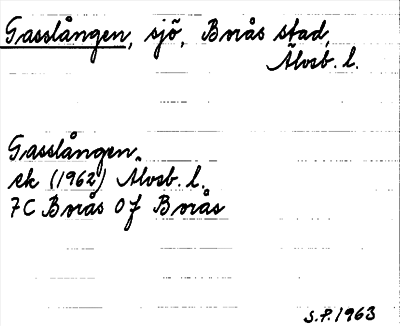 Gasslången, sjö, Borås stad,
Älvsb. l.
Gasslången
ek (1962) Älvsb. l.
7C Borås 0f Borås
S.P. 1963